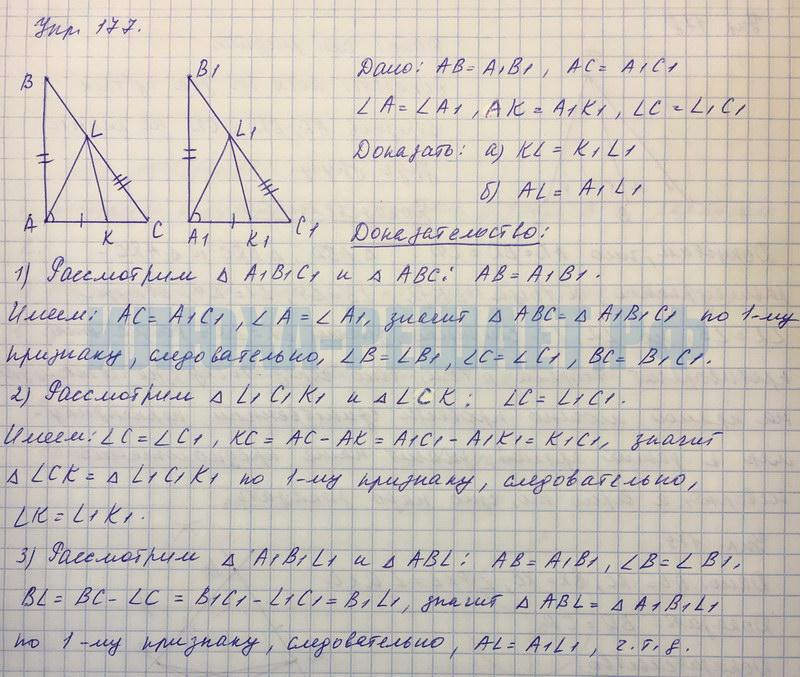 Упр. 177.
B
L
A
K
C
B1
L1
A1
K1
C1
Дано: AB = A1B1, AC = A1C1
∠A = ∠A1, AK = A1K1, LC = L1C1
Доказать: а) KL = K1L1
б) AL = A1L1
Доказательство:
1) Рассмотрим △ A1B1C1 и △ ABC: AB = A1B1.
Имеем: AC = A1C1, ∠A = ∠A1, значит △ ABC = △ A1B1C1 по 1-му
признаку, следовательно, ∠B = ∠B1, ∠C = ∠C1, BC = B1C1.
2) Рассмотрим △ L1C1K1 и △ LCK: LC = L1C1.
Имеем: ∠C = ∠C1, KC = AC - AK = A1C1 - A1K1 = K1C1, значит
△ LCK = △ L1C1K1 по 1-му признаку, следовательно,
LK = L1K1.
3) Рассмотрим △ A1B1L1 и △ ABL: AB = A1B1, ∠B = ∠B1,
BL = BC - LC = B1C1 - L1C1 = B1L1, значит △ ABL = △ A1B1L1
по 1-му признаку, следовательно, AL = A1L1, ч.т.д.